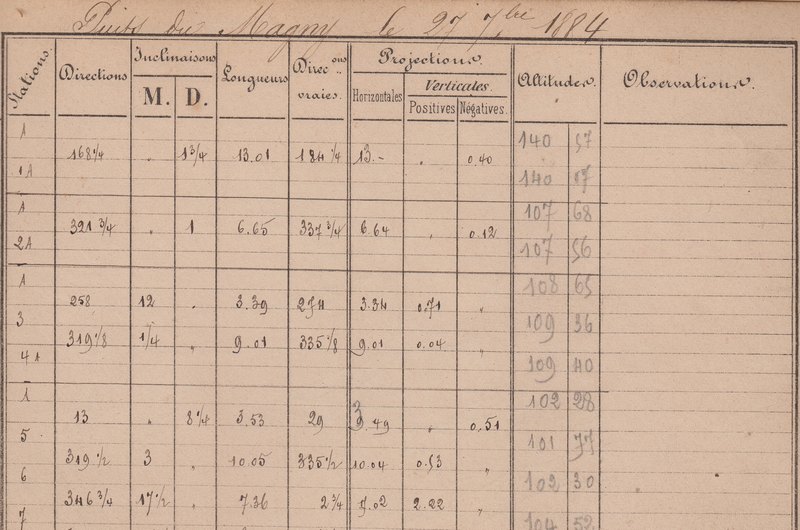 Puits du Magny le 27 7bre 1884
Stations. Directions Inclinaisons M. D. Longueurs Direcons vraies. Projections. Horizontales Verticales. Positives Négatives. Altitudes. Observations.
1 140 57
168 1/4 " 1 3/4 13.01 184 1/4 13.- " 0.40
1A 140 17
1 107 68
321 3/4 " 1 6.65 337 3/4 6.64 " 0.12
2A 107 56
1 108 65
258 12 " 3.39 274 3.34 0.71 "
3 109 36
319 1/8 1/4 " 9.01 335 1/8 9.01 0.04 "
4A 109 40
1 102 28
13 " 8 1/4 3.53 29 3.49 " 0.51
5 101 77
319 1/2 3 " 10.05 335 1/2 10.04 0.53 "
6 102 30
346 3/4 17 1/2 " 7.36 2 3/4 7.02 2.22 "
7 104 52